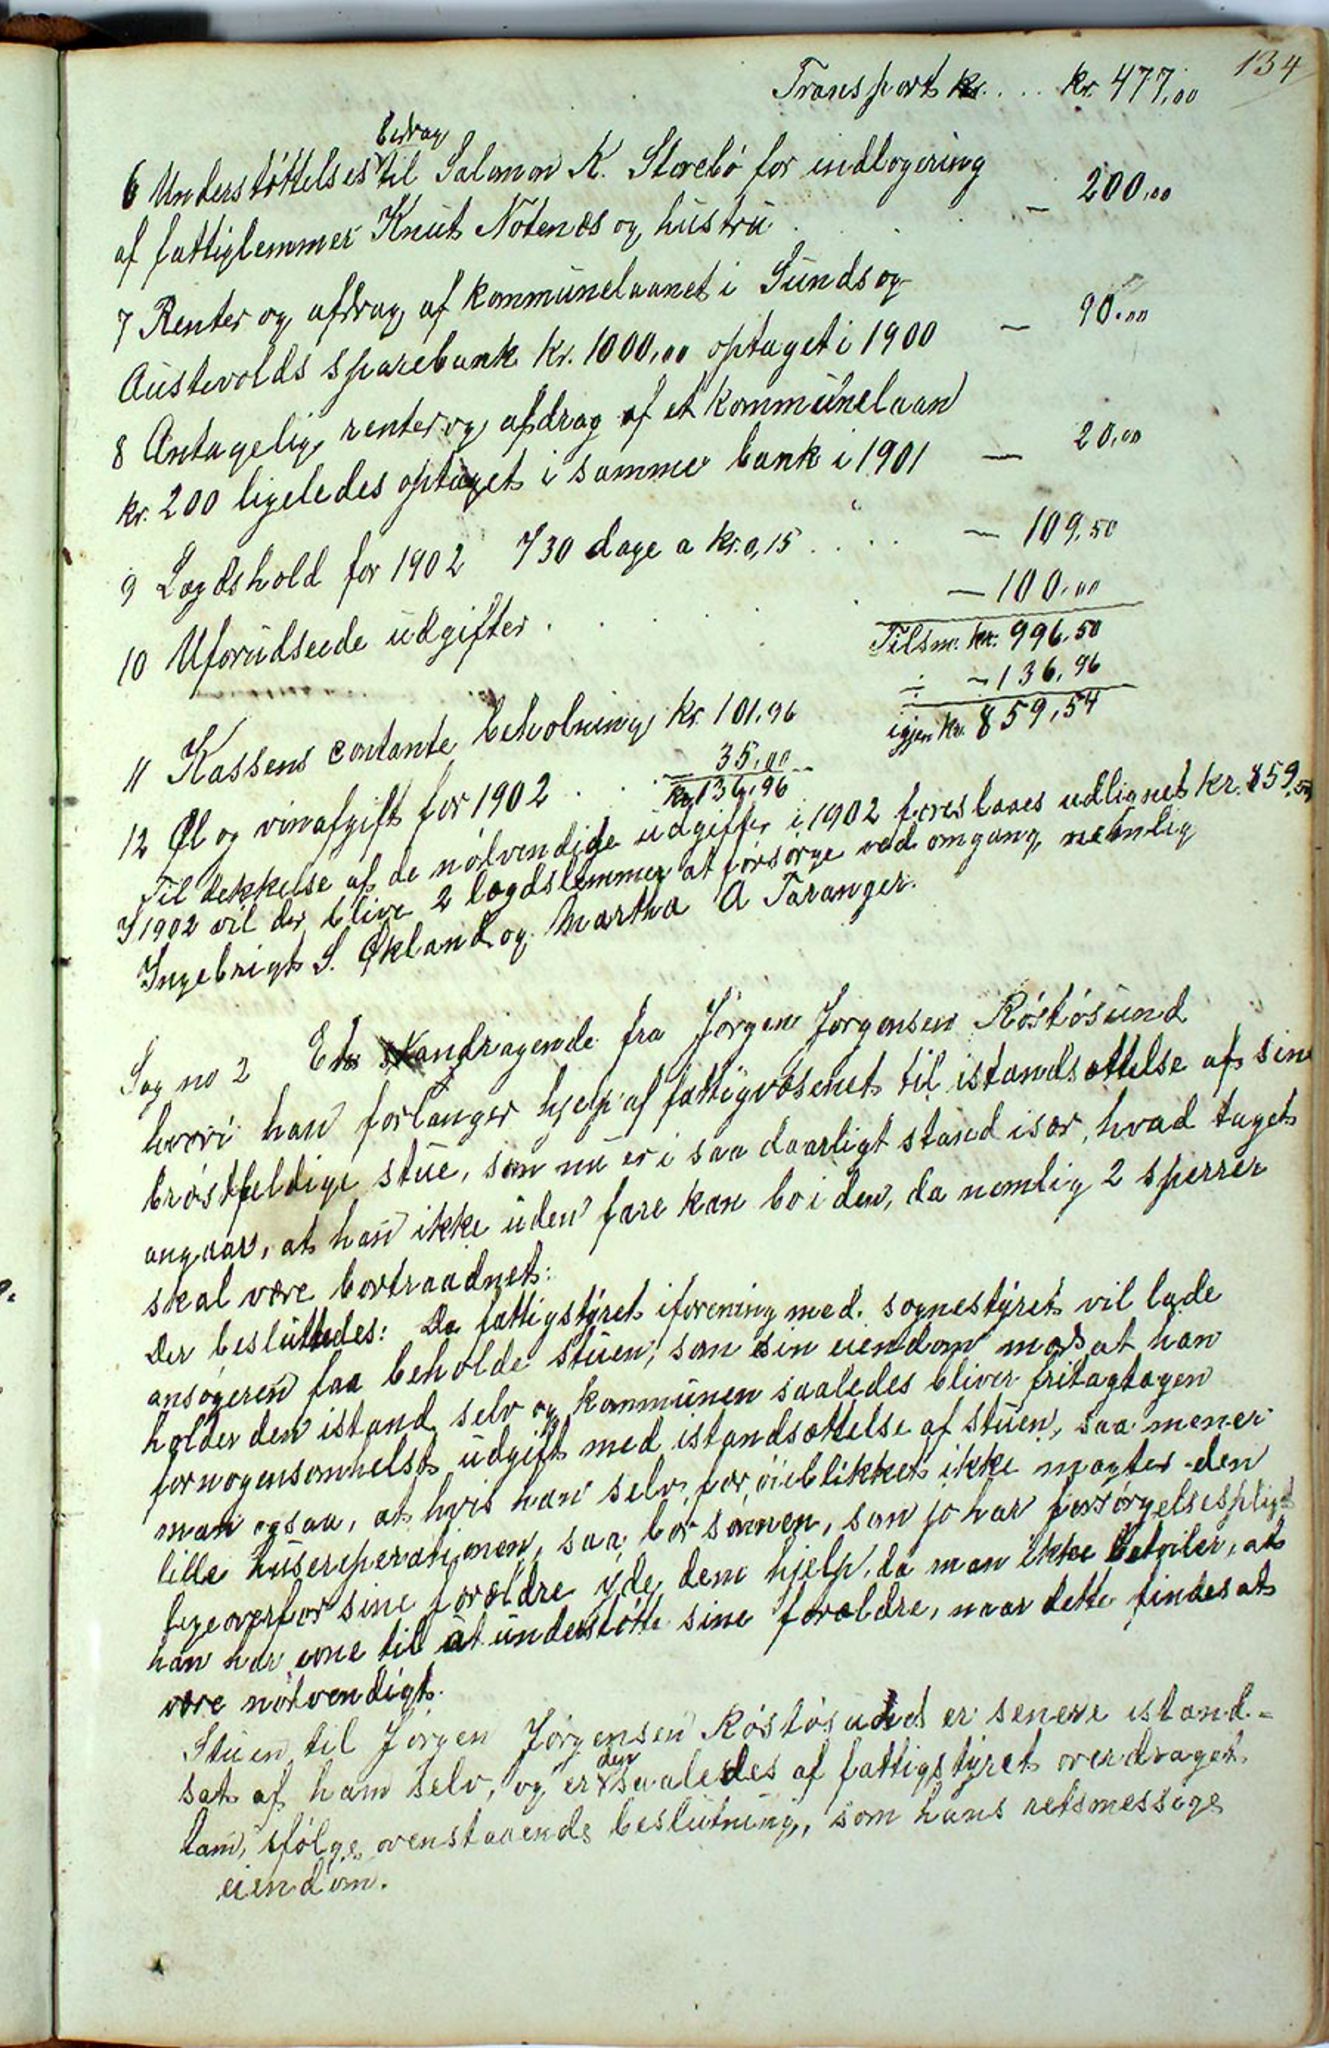 134
Transport kr. . . . kr. 477,00
6 Understøttelses bidrag til Salomon K. Storebø for indlogering
af fattiglemmer Knut Nótenæs og hustru . . . — 200,00
7 Renter og afdrag af kommunelaanet i Sunds og
Austevolds sparebank kr. 1000,00 optaget i 1900 — 90,00
8 Antagelig renter og afdrag af et kommunelaan
kr. 200 ligeledes optaget i samme bank i 1901 — 20,00
9 Lægdshold for 1902 730 dage a kr. 0,15 . . . . — 109,50
10 Uforudseede udgifter . . . . . — 100,00
Tilsm. kr. 996,50
÷ — 136,96
igjen kr. 859,54
11 Kassens contante beholning kr. 101,96
12 Øl og vinafgift for 1902 . . . — 35,00
kr. 136,96
Til dekkelse af de nødvendige udgifter i 1902 foreslaaes udlignet kr. 859,54
I 1902 vil der blive 2 lægdslemmer at forsørge ved omgang, nemlig
Ingebrigt S. Økland og Martha A Taranger.
Sag no 2 Et andragende fra Jørgen Jørgensen Róstósund
hvori han forlanger hjelp af fattigvæsenet til istandsættelse af sin
brøstfeldige stue, som nu er i saa daarligt stand især, hvad taget
angaar, at han ikke uden fare kan bo i den, da nemlig 2 sperrer
skal være bortraadnet:
Der besluttedes: Da fattigstyret iforening med sognestyret vil lade
ansøgeren faa beholde stuen, som sin eiendom mod at han
holder den istand selv og kommunen saaledes bliver fritagtagen
for nogensomhelst udgift med istandsættelse af stuen, saa mener
man ogsaa, at hvis han selv for øieblikket ikke magter den
lille husereperationen, saa bør sønnen, som jo har forsørgelsespligt
ligeoverfor sine forældre yde dem hjelp, da man ikke betviler, at
han har evne til at understøtte sine forældre, naar dette findes at
være nødvendigt.
Stuen til Jørgen Jørgensen Róstósund er senere istand-
sat af ham selv, og er den saaledes af fattigstyret overdraget
ham, ifølge ovenstaaende beslutning, som hans retsmessige
eiendom.